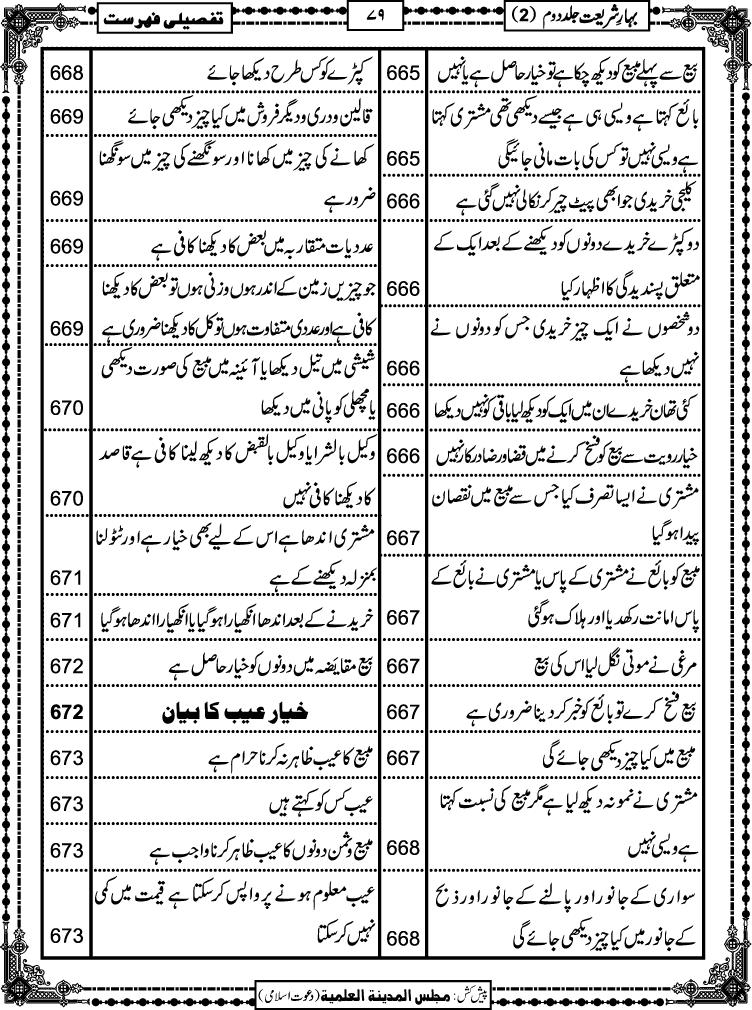 بہارِ شریعت جلد دوم (2)
۷۹
تفصیلی فہرست
بیع سے پہلے مبیع کو دیکھ چکا ہے تو خیار حاصل ہے یا نہیں 665
بائع کہتا ہے ویسی ہی ہے جیسے دیکھی تھی مشتری کہتا
ہے ویسی نہیں تو کس کی بات مانی جائیگی 665
کلیجی خریدی جو ابھی پیٹ چیر کر نکالی نہیں گئی ہے 666
دو کپڑے خریدے دونوں کو دیکھنے کے بعد ایک کے
متعلق پسندیدگی کا اظہار کیا 666
دو شخصوں نے ایک چیز خریدی جس کو دونوں نے
نہیں دیکھا ہے 666
کئی تھان خریدے ان میں ایک کو دیکھ لیا باقی کو نہیں دیکھا 666
خیار رویت سے بیع کو فسخ کرنے میں قضا و رضا درکار نہیں 666
مشتری نے ایسا تصرف کیا جس سے مبیع میں نقصان
پیدا ہو گیا 667
مبیع کو بائع نے مشتری کے پاس یا مشتری نے بائع کے
پاس امانت رکھ دیا اور ہلاک ہو گئی 667
مرغی نے موتی نگل لیا اس کی بیع 667
بیع فسخ کرے تو بائع کو خبر کر دینا ضروری ہے 667
مبیع میں کیا چیز دیکھی جائے گی 667
مشتری نے نمونہ دیکھ لیا ہے مگر مبیع کی نسبت کہتا
ہے ویسی نہیں 668
سواری کے جانور اور پالنے کے جانور اور ذبح
کے جانور میں کیا چیز دیکھی جائے گی 668
کپڑے کو کس طرح دیکھا جائے 668
قالین و دری و دیگر فروش میں کیا چیز دیکھی جائے 669
کھانے کی چیز میں کھانا اور سونگھنے کی چیز میں سونگھنا
ضرور ہے 669
عددیات متقاربہ میں بعض کا دیکھنا کافی ہے 669
جو چیزیں زمین کے اندر ہوں وزنی ہوں تو بعض کا دیکھنا
کافی ہے اور عددی متفاوت ہوں تو کل کا دیکھنا ضروری ہے 669
شیشی میں تیل دیکھا یا آئینہ میں مبیع کی صورت دیکھی
یا مچھلی کو پانی میں دیکھا 670
وکیل بالشرا یا وکیل بالقبض کا دیکھ لینا کافی ہے قاصد
کا دیکھنا کافی نہیں 670
مشتری اندھا ہے اس کے لیے بھی خیار ہے اور ٹٹولنا
بمنزلہ دیکھنے کے ہے 671
خریدنے کے بعد اندھا انکھیارا ہو گیا یا انکھیارا اندھا ہو گیا 671
بیع مقایضہ میں دونوں کو خیار حاصل ہے 672
خیار عیب کا بیان 672
مبیع کا عیب ظاہر نہ کرنا حرام ہے 673
عیب کس کو کہتے ہیں 673
مبیع و ثمن دونوں کا عیب ظاہر کرنا واجب ہے 673
عیب معلوم ہونے پر واپس کر سکتا ہے قیمت میں کمی
نہیں کر سکتا 673
پیش کش: مجلس المدینۃ العلمیۃ (دعوت اسلامی)